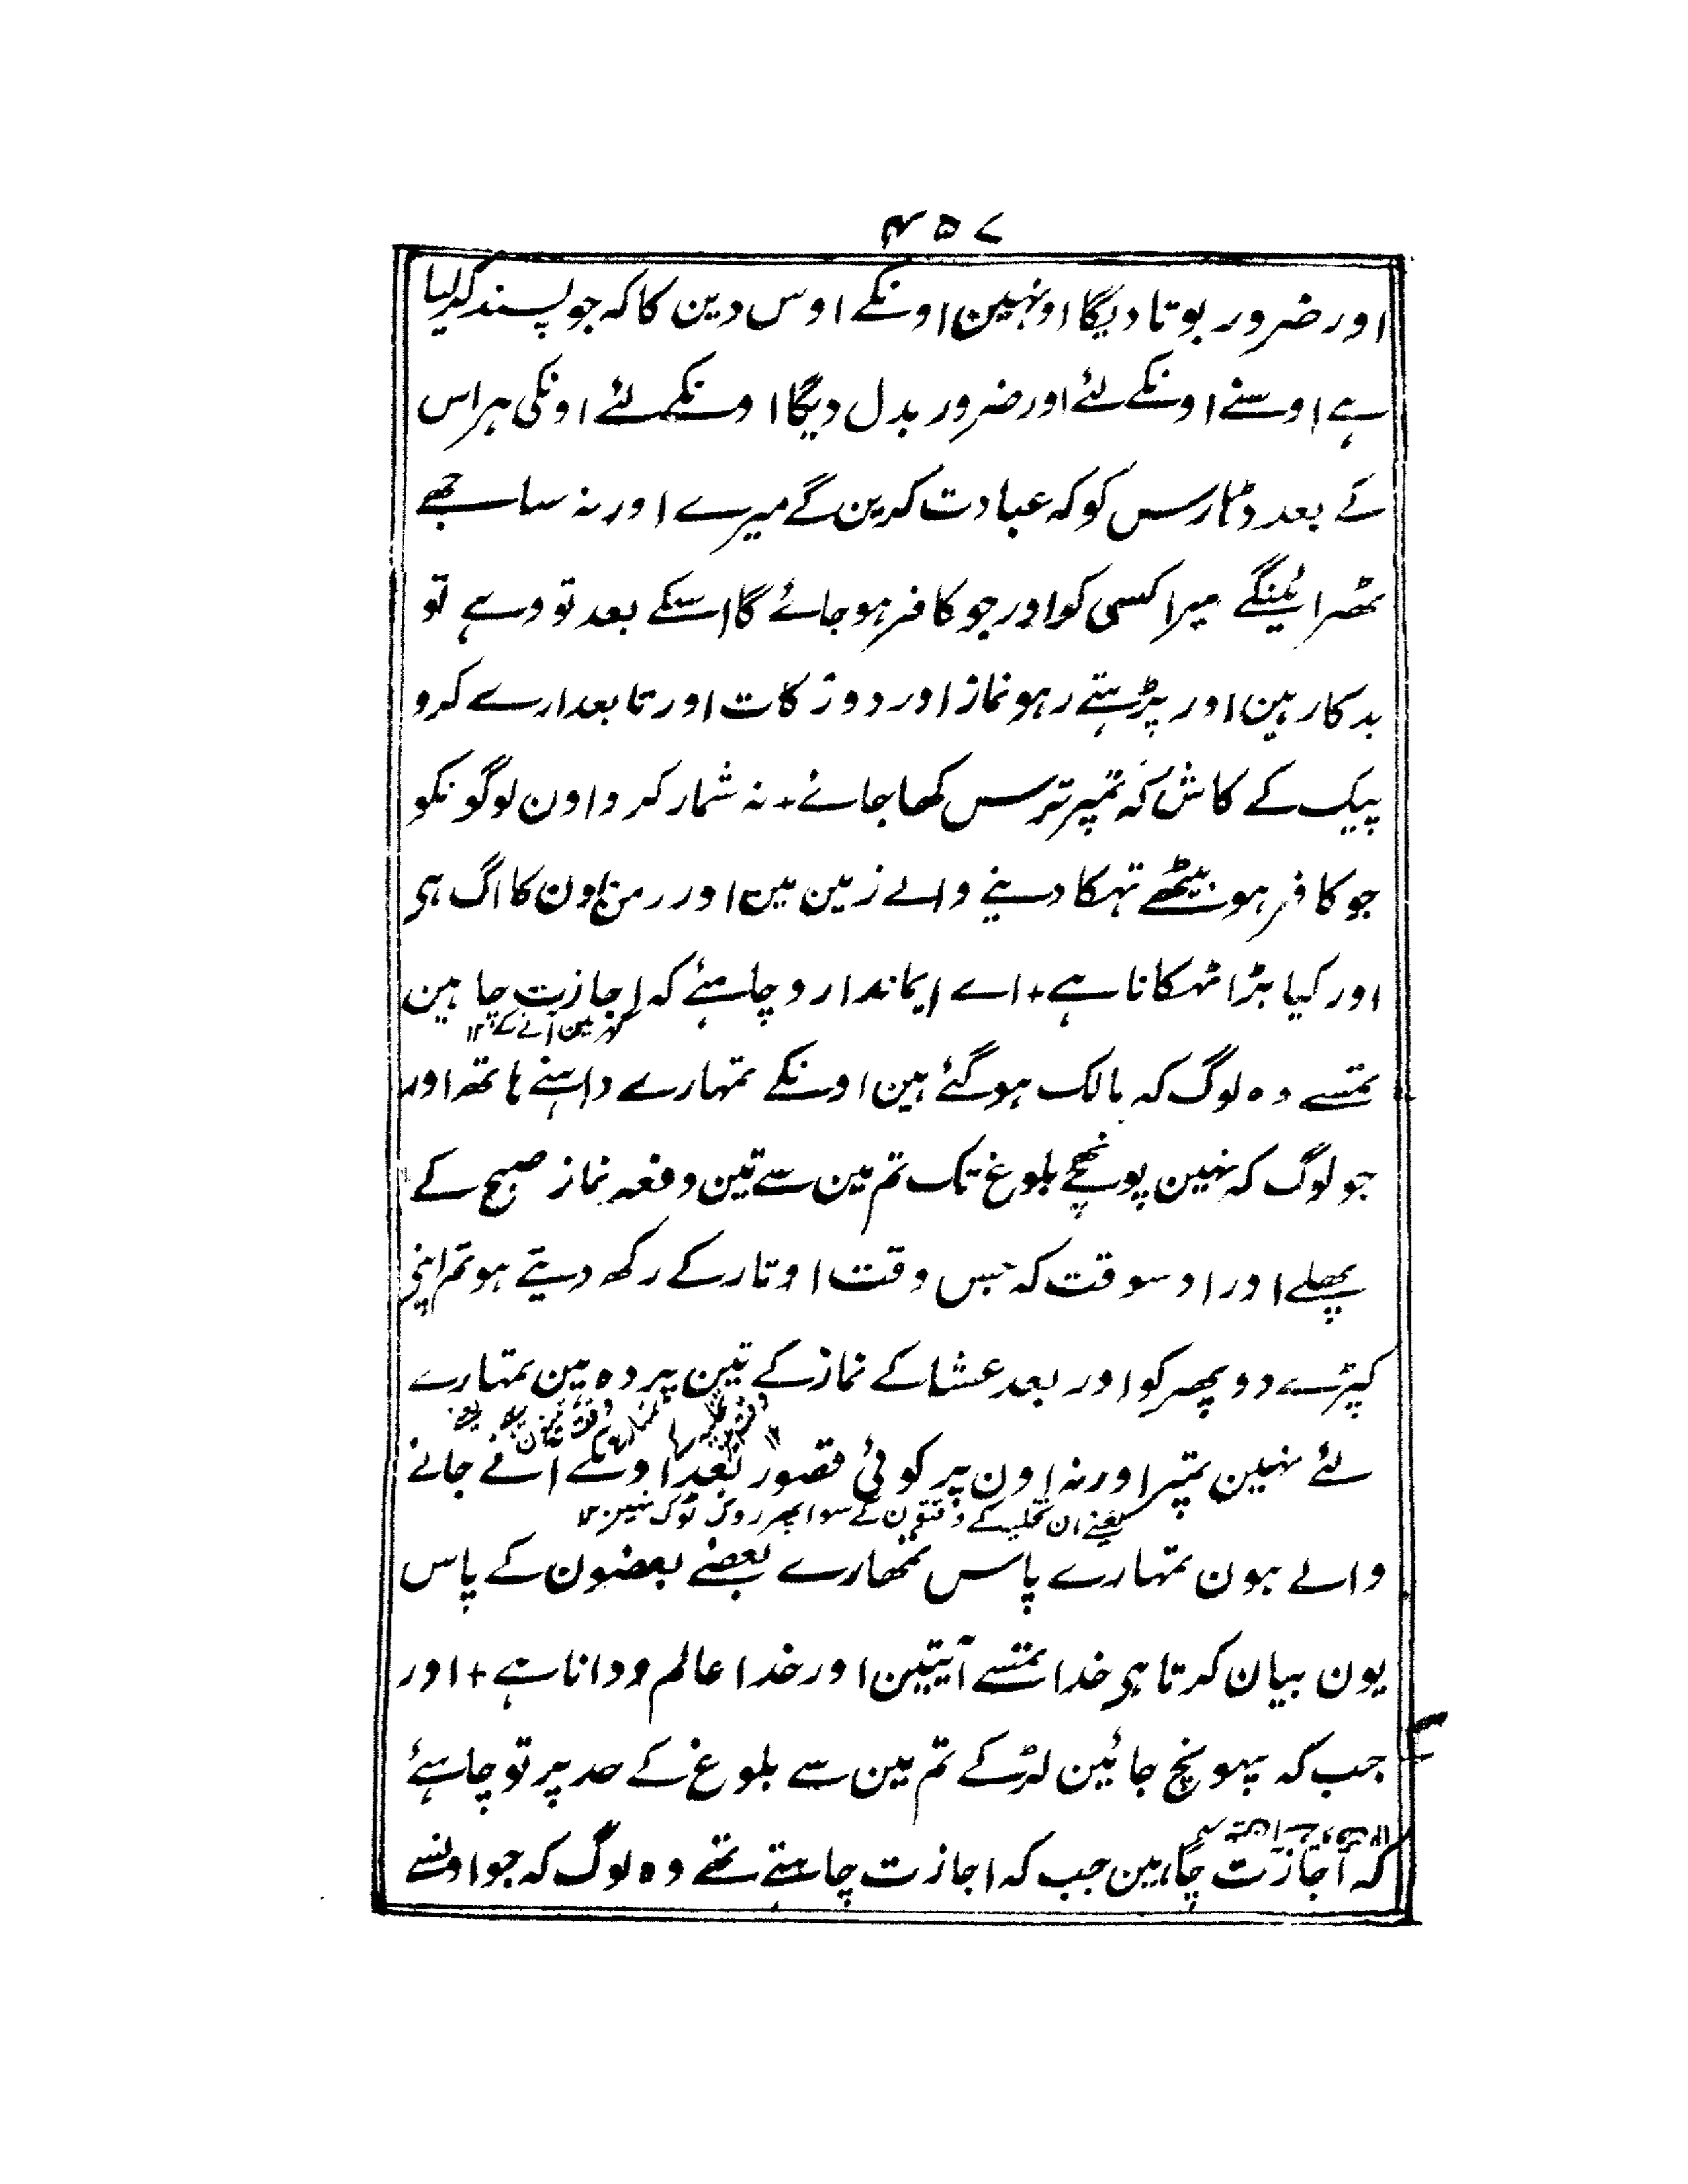 ۴۵۷
اور ضرور بوتا دیگا اونہین اونکے اوس دین کا کہ جو پسند کر لیا
ہے اوسنے اونکے لئے اور ضرور بدل دیگا اونکے لئے اونکی ہراس
کے بعد ڈھارس کو کہ عبادت کرین گے میرے اور نہ ساجھے
ٹھرائینگے میرا کسی کو اور جو کافر ہو جائے گا اسکے بعد تو وہے تو
بدکار ہین اور پڑہتے رہو نماز اور دو زکات اور تابعدارے کرو
پیک کے کاش کہ تمپر ترس کھا جائے + نہ شمار کرو اون لوگونکو
جو کافر ہو بیٹھے تہکا دینے والے زمین مین اور رمنا اون کا اگ ہی
اور کیا بڑا ٹہکانا ہے + اے ایماندارو چاہئے کہ اجازت چاہین
گہر مین آنے کے ۱۲
تمسے وہ لوگ کہ مالک ہو گئے ہین اونکے تمہارے داہنے ہاتھ اور
جو لوگ کہ نہین پونچے بلوغ تک تم مین سے تین دفعہ نماز صبح کے
پھلے اور اوسوقت کہ جس وقت اوتار کے رکھ دیتے ہو تم اپنی
کپڑے دو پھر کو اور بعد عشا کے نماز کے تین پردہ ہین تمہارے
لئے نہین تمپر اور نہ اون پر کوئی قصور بعد اونکے آنے جانے
یعنے ان تخلیہ کے وقتون کے سوا پھر روک ٹوک نہین ۱۲
والے ہون تمہارے پاس تمھارے بعضے بعضون کے پاس
یون بیان کرتا ہی خدا تمسے آیتین اور خدا عالم و دانا ہے + اور
جب کہ پہونچ جائین لڑکے تم مین سے بلوغ کے حد پر تو چاہئے
کہ اجازت چاہین جب کہ اجازت چاہتے تھے وہ لوگ کہ جو اونسے